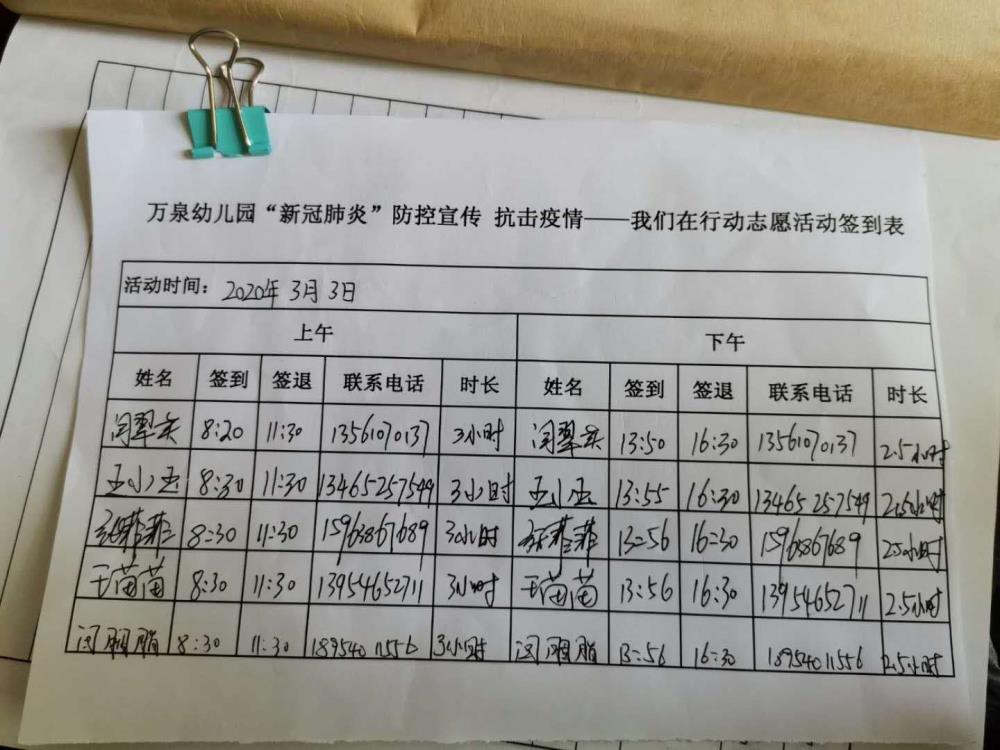 万泉幼儿园“新冠肺炎”防控宣传 抗击疫情——我们在行动志愿活动签到表
活动时间：2020年3月3日
上午 下午
姓名 签到 签退 联系电话 时长 姓名 签到 签退 联系电话 时长
闫翠 8:20 11:30 3小时 闫翠 13:50 16:30 2.5小时
王小玉 8:30 11:30 13465257549 3小时 王小玉 13:55 16:30 13465257549 2.5小时
菲菲 8:30 11:30 3小时 菲菲 13:56 16:30 2.5小时
于苗苗 8:30 11:30 13954652711 3小时 于苗苗 13:56 16:30 13954652711 2.5小时
闵 8:30 11:30 18954011556 3小时 闵 13:56 16:30 18954011556 2.5小时